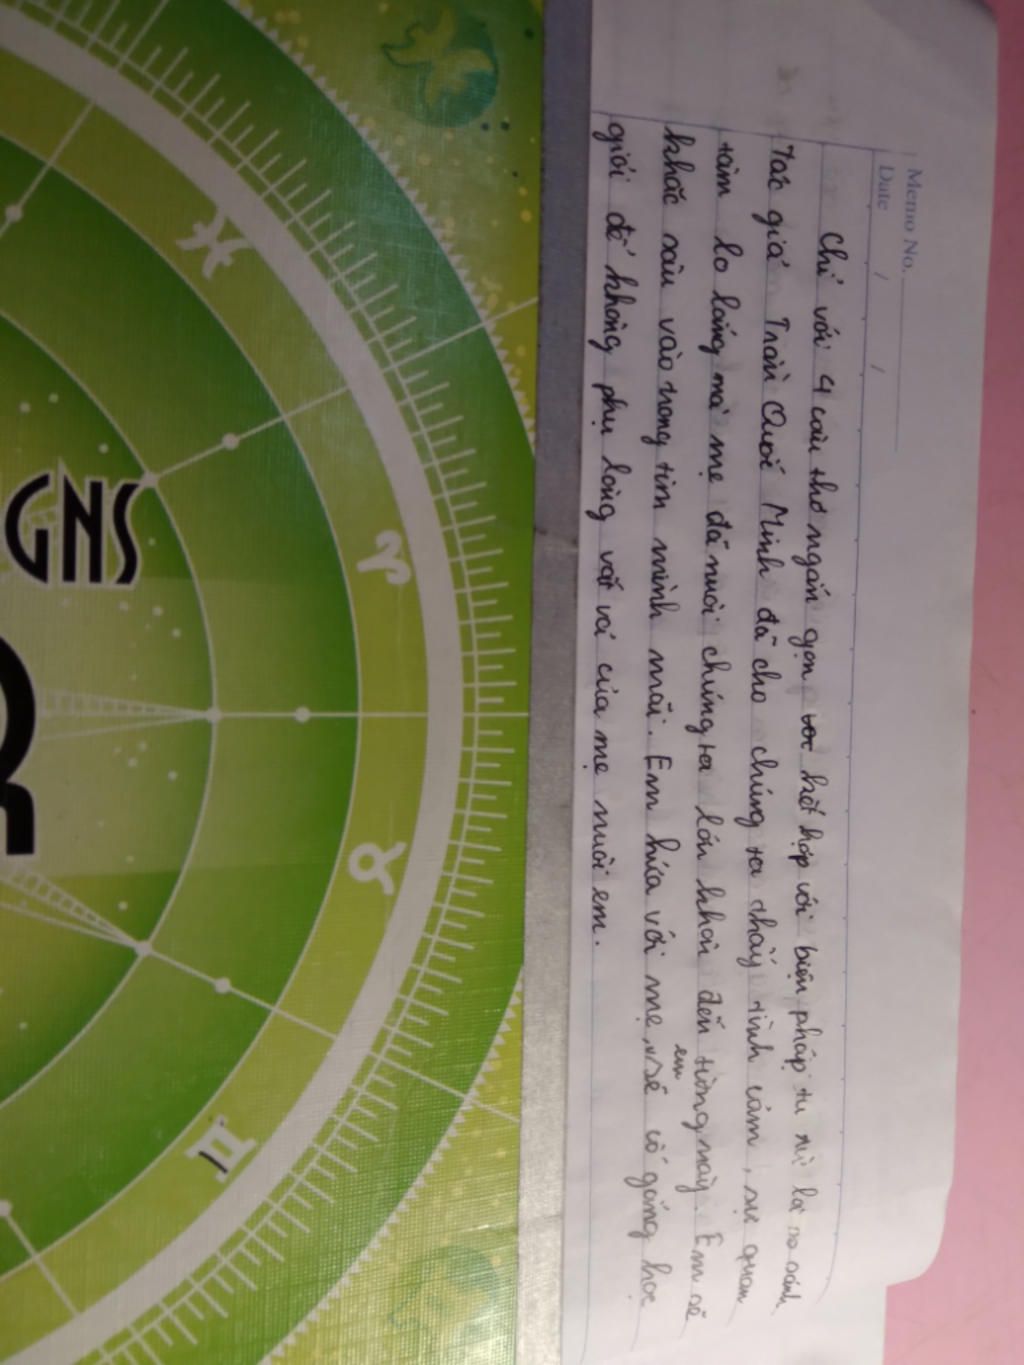 Memo No.
Date / /
Chỉ với 4 câu thơ ngắn gọn kết hợp với biện pháp tu từ là so sánh
Tác giả Trần Quốc Minh đã cho chúng ta thấy tình cảm, sự quan
tâm lo lắng mà mẹ đã nuôi chúng ta lớn khôn đến từng này. Em sẽ
khắc sâu vào trong tim mình mãi. Em hứa với mẹ, em sẽ cố gắng học
giỏi để không phụ lòng vất vả của mẹ nuôi em.
GNS